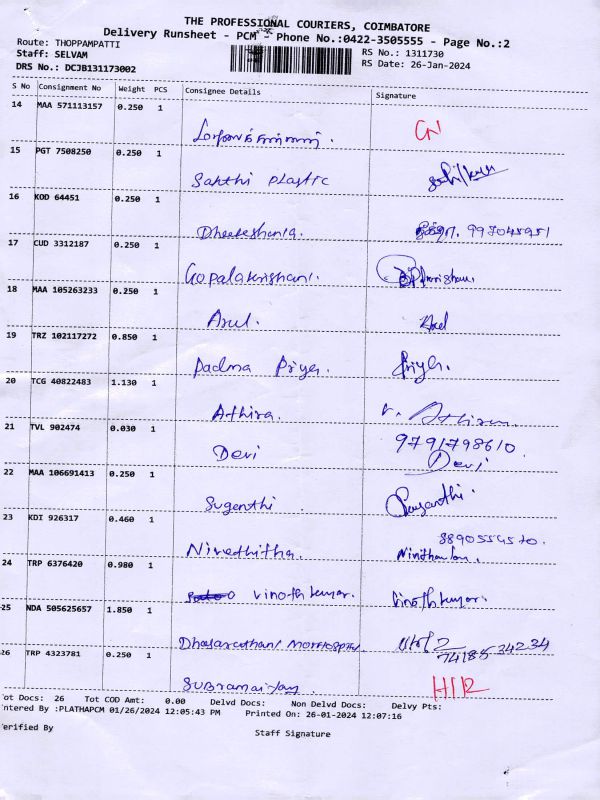 THE PROFESSIONAL COURIERS, COIMBATORE
Delivery Runsheet - PCM - Phone No.:0422-3505555 - Page No.:2
Route: THOPPAMPATTI
Staff: SELVAM
DRS No.: DCJB131173002
RS No.: 1311730
RS Date: 26-Jan-2024
S No Consignment No Weight PCS Consignee Details Signature
14 MAA 571113157 0.250 1
15 PGT 7508250 0.250 1 Sakthi Plastic
16 KOD 64451 0.250 1 Dheekeshana. 997045951
17 CUD 3312187 0.250 1 Gopalakrishani.
18 MAA 105263233 0.250 1 Arul.
19 TRZ 102117272 0.850 1 Padma Priya. Priya.
20 TCG 40822483 1.130 1 Athira.
21 TVL 902474 0.030 1 Devi 9791798610. Devi
22 MAA 106691413 0.250 1 Sugenthi
23 KDI 926317 0.460 1 Nivedhitha. 8890554520.
24 TRP 6376420 0.980 1 Vinoth kumar. Vinoth kumar.
25 NDA 505625657 1.850 1 7418534234
26 TRP 4323781 0.250 1 H12
ot Docs: 26 Tot COD Amt: 0.00 Delvd Docs: Non Delvd Docs: Delvy Pts:
ntered By :PLATHAPCM 01/26/2024 12:05:43 PM Printed On: 26-01-2024 12:07:16
erified By Staff Signature